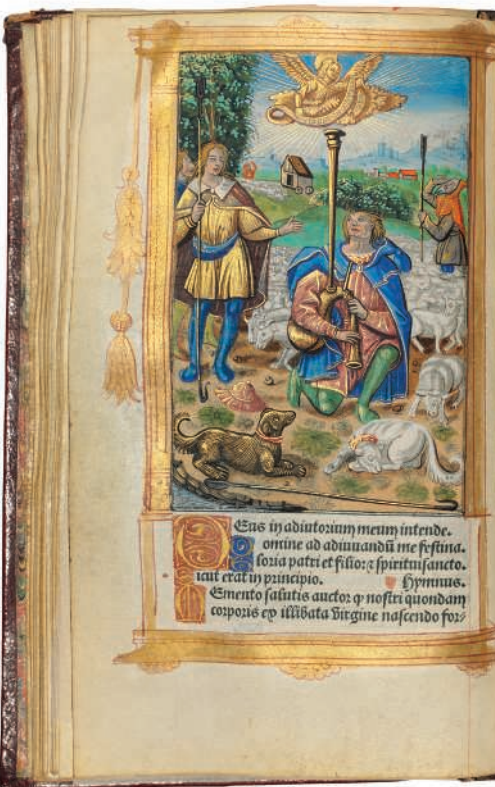 Eus in adiutorium meum intende.
omine ad adiuuandū me festina.
loria patri et filio: ⁊ spiritui sancto.
icut erat in principio. Hymnus.
Emento salutis auctor ꝙ nostri quondam
corporis ex illibata virgine nascendo for-